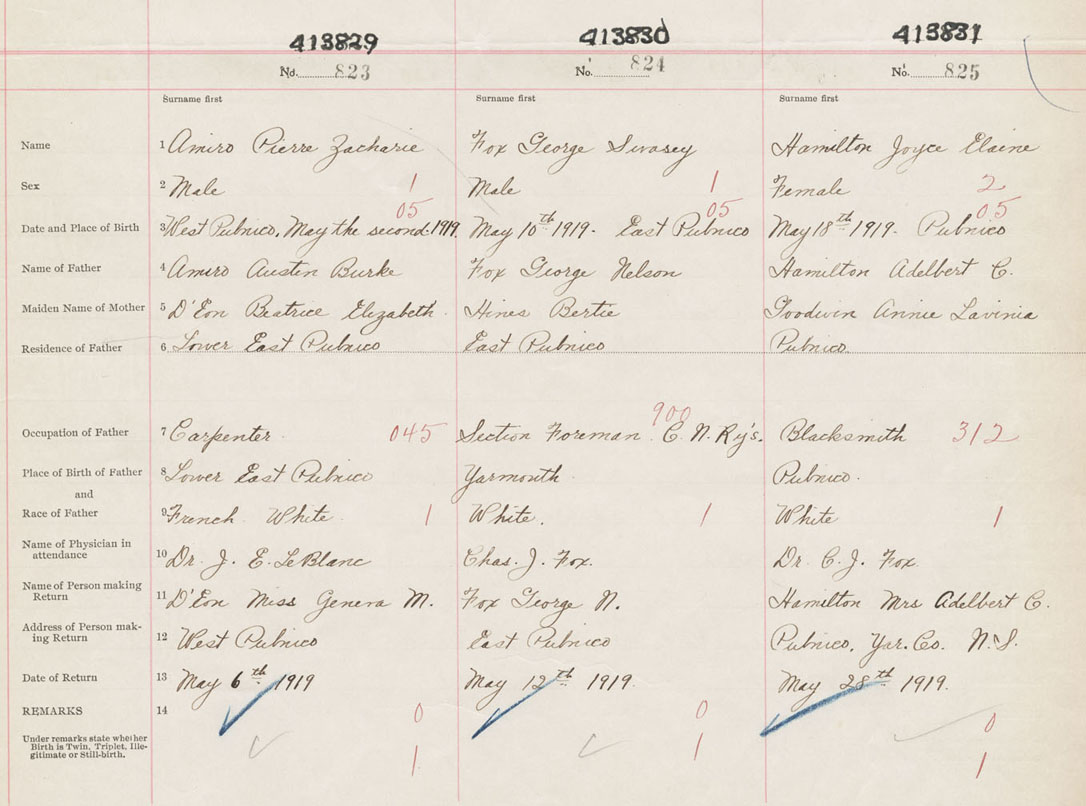 413829 413830 413831
No. 823 No. 824 No. 825
Surname first Surname first Surname first
Name 1 Amiro Pierre Zacharie Fox George Sivasey Hamilton Joyce Elaine
Sex 2 Male 1 Male 1 Female 2
05 05 05
Date and Place of Birth 3 West Pubnico, May the second. 1919. May 10th 1919. East Pubnico May 18th 1919. Pubnico
Name of Father 4 Amiro Austin Burke Fox George Nelson Hamilton Adelbert C.
Maiden Name of Mother 5 D'Eon Beatrice Elizabeth Hines Bertie Goodwin Annie Lavinia
Residence of Father 6 Lower East Pubnico East Pubnico Pubnico.
900
Occupation of Father 7 Carpenter 045 Section Foreman C. N. Ry's. Blacksmith 312
Place of Birth of Father 8 Lower East Pubnico Yarmouth Pubnico.
and
Race of Father 9 French White 1 White. 1 White 1
Name of Physician in
attendance 10 Dr. J. E. LeBlanc Chas. J. Fox. Dr. C. J. Fox
Name of Person making
Return 11 D'Eon Miss Geneva M. Fox George N. Hamilton Mrs Adelbert C.
Address of Person mak-
ing Return 12 West Pubnico East Pubnico Pubnico, Yar. Co. N.S.
Date of Return 13 May 6th 1919 May 12th 1919. May 28th 1919.
REMARKS 14 0 0 0
Under remarks state whether
Birth is Twin, Triplet, Ille-
gitimate or Still-birth. 1 1 1